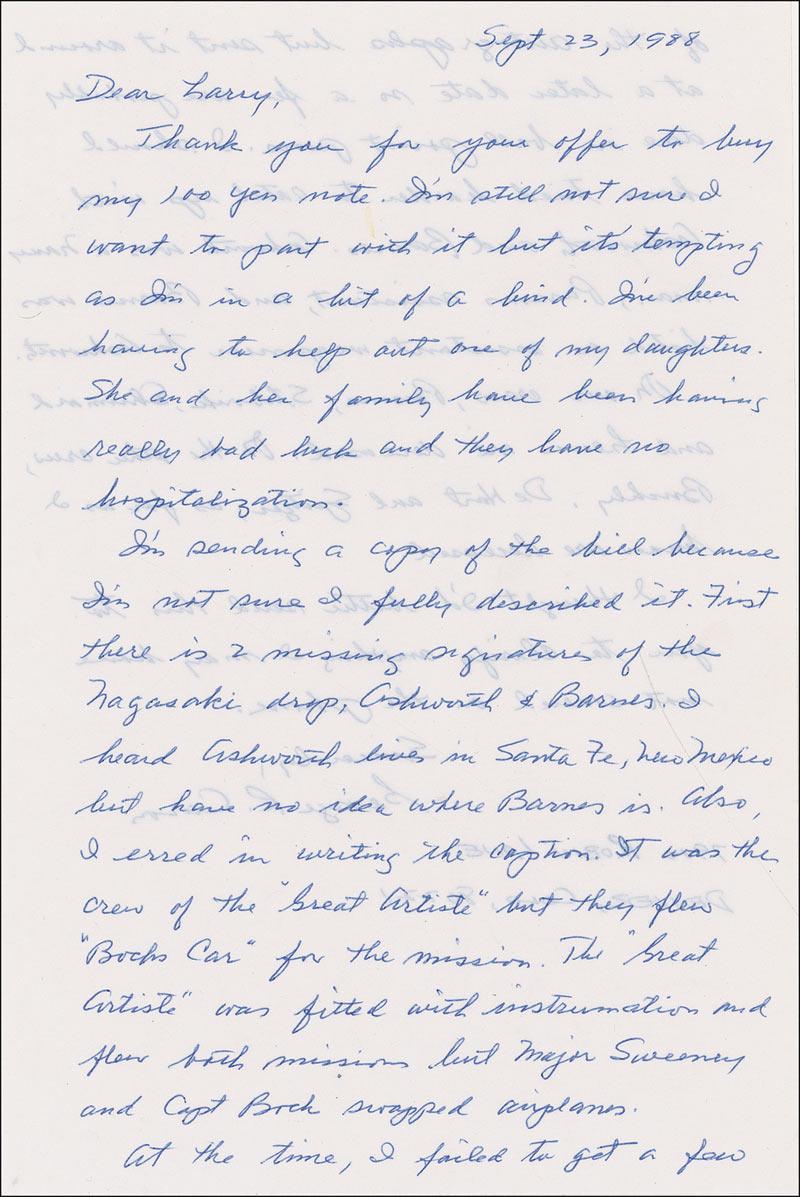 Sept 23, 1988
Dear Larry,
Thank you for your offer to buy
my 100 yen note. I'm still not sure I
want to part with it but it's tempting
as I'm in a bit of a bind. I've been
having to help out one of my daughters.
She and her family have been having
really bad luck and they have no
hospitalization.
I'm sending a copy of the bill because
I'm not sure I fully described it. First
there is 2 missing signatures of the
Nagasaki drop, Ashworth & Barnes. I
heard Ashworth lives in Santa Fe, New Mexico
but have no idea where Barnes is. Also,
I erred in writing the caption. It was the
crew of the "Great Artiste" but they flew
"Bocks Car" for the mission. The "Great
Artiste" was fitted with instrumation and
flew both missions but Major Sweeney
and Capt Bock swapped airplanes.
At the time, I failed to get a few